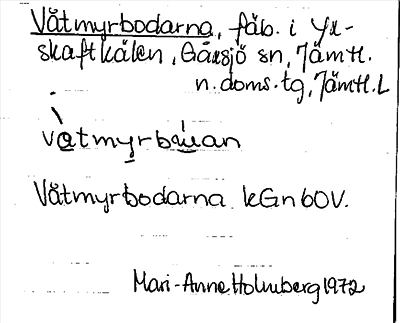 Våtmyrbodarna, fäb. i Yx-
skaftkälen, Gåxsjö sn, Jämtl.
n. doms. tg, Jämtl. L
våtmyrbúan
Våtmyrbodarna kGnbOV.
Mari-Anne Holmberg 1972